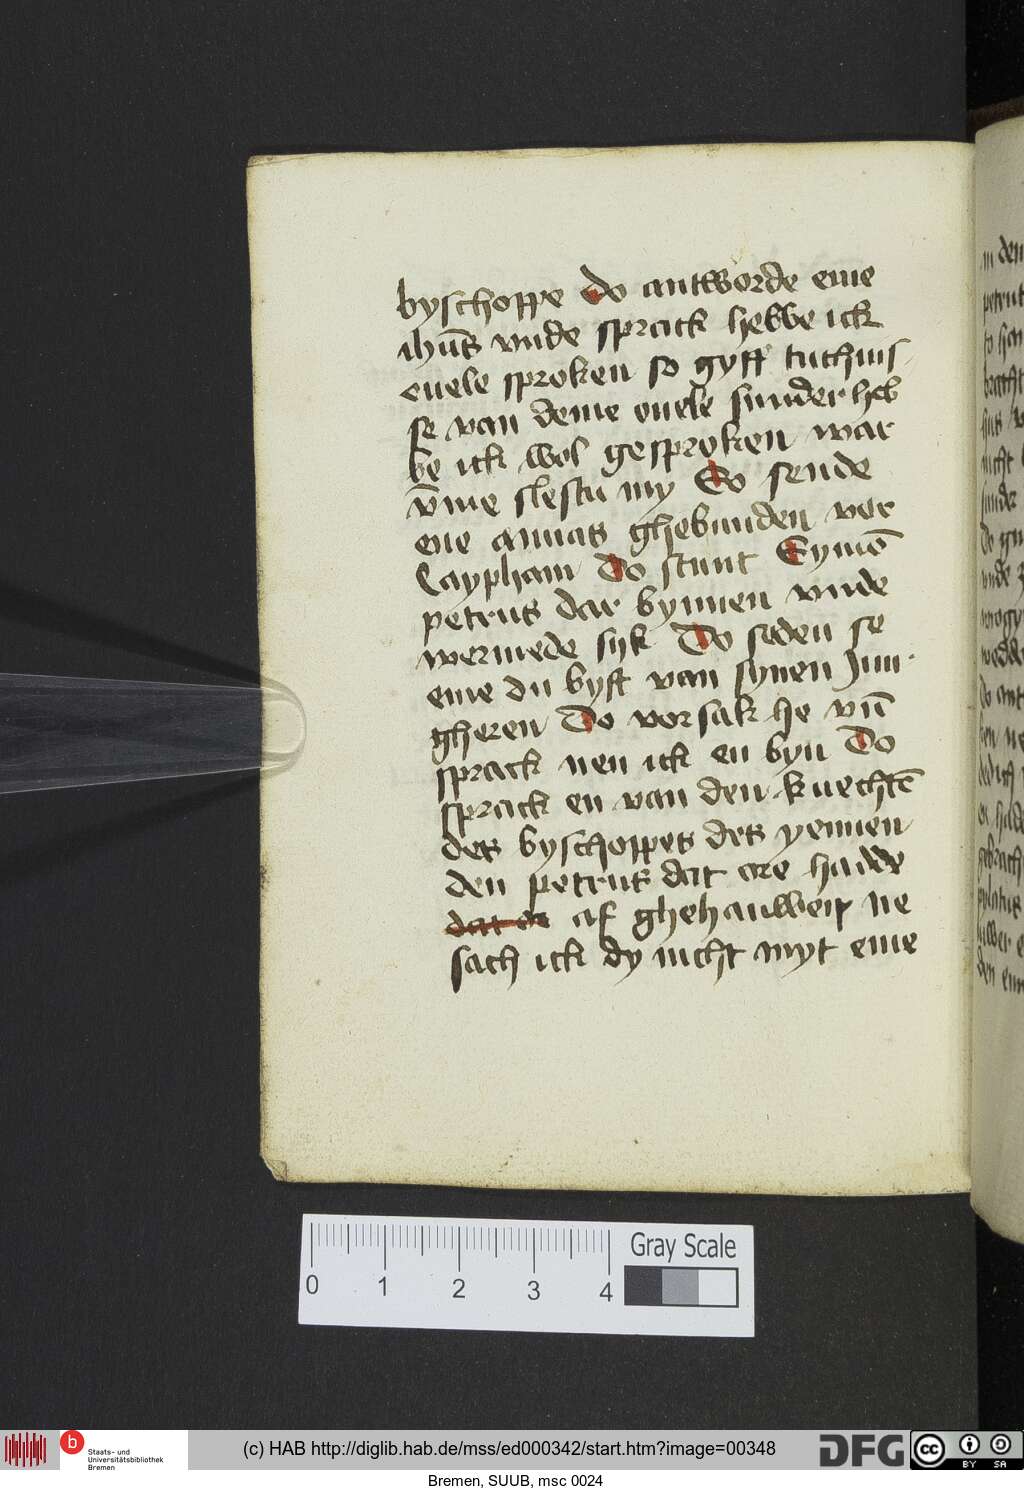 byschoppe do antworde eme
ihūs vnde sprack hebbe ick
ouele sproken so gyff tuchnis
se van deme ouele sunder heb
be ick wol gesproken war
v̄me slestu my Do sende
ene annas ghebunden vor
Caypham Do stunt Symō
petrus dar bynnen vnde
wermede syk Do seden se
eme du byst van synen Jun
gheren Do vorsak he vn̄
sprack nen ick en byn Do
sprack en van den knechtē
des byschoppes des yennen
den petrus dat ore hadde
dat or af ghehauwen ne
sach ick dy nicht myt eme
in den
0 1 2 3 4
Gray Scale
b
Staats- und
Universitätsbibliothek
Bremen
(c) HAB http://diglib.hab.de/mss/ed000342/start.htm?image=00348
DFG
cc BY SA
Bremen, SUUB, msc 0024